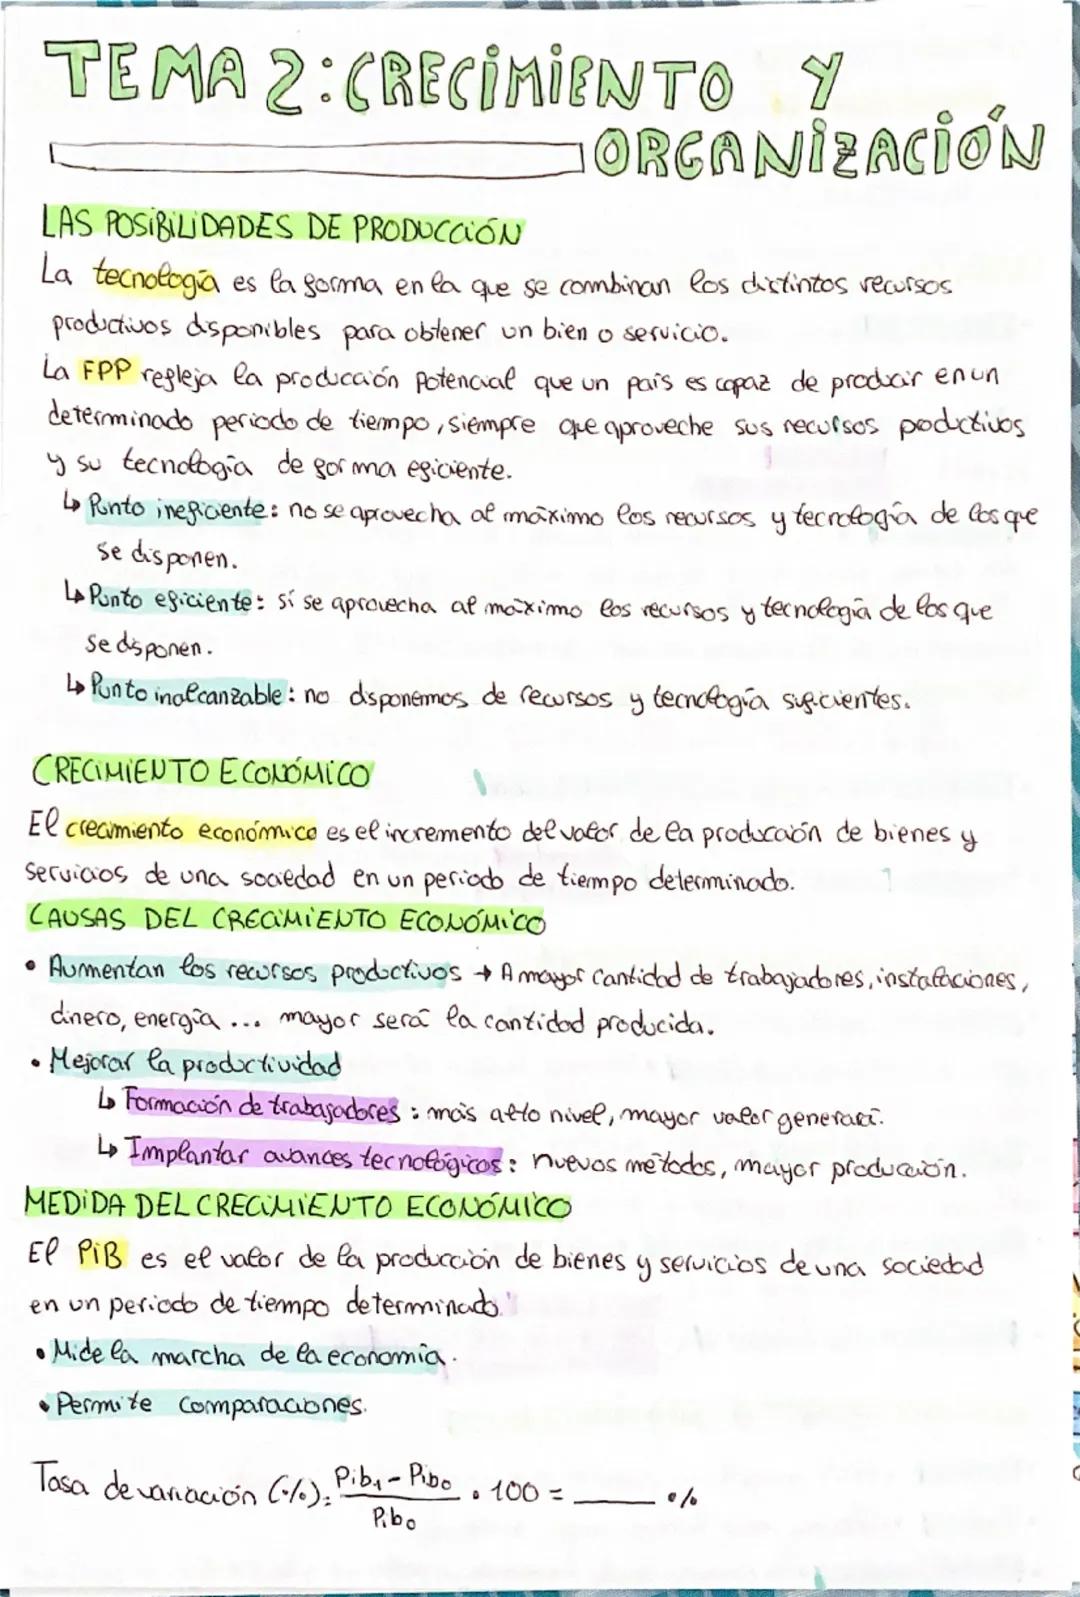 TEMA 2: CRECIMIENTO Y
ORGANIZACIÓN
LAS POSIBILIDADES DE PRODUCCIÓN
La tecnología es la forma en la que se combinan los distintos recursos
productivos disponibles para obtener un bien o servicio.
La FPP refleja la producción potencial que un país es capaz de producir en un
determinado periodo de tiempo, siempre que aproveche sus recursos productivos
y su tecnología de forma eficiente.
↳ Punto ineficiente: no se aprovecha al máximo los recursos y tecnología de los que
se disponen.
↳ Punto eficiente: sí se aprovecha al máximo los recursos y tecnología de los que
se disponen.
↳ Punto inalcanzable: no disponemos de recursos y tecnología suficientes.
CRECIMIENTO ECONÓMICO
El crecimiento económico es el incremento del valor de la producción de bienes y
servicios de una sociedad en un periodo de tiempo determinado.
CAUSAS DEL CRECIMIENTO ECONÓMICO
• Aumentan los recursos productivos → A mayor cantidad de trabajadores, instalaciones,
dinero, energía ... mayor será la cantidad producida.
• Mejorar la productividad
↳ Formación de trabajadores: más alto nivel, mayor valor generará.
↳ Implantar avances tecnológicos: nuevos métodos, mayor producción.
MEDIDA DEL CRECIMIENTO ECONÓMICO
El PIB es el valor de la producción de bienes y servicios de una sociedad
en un periodo de tiempo determinado.
• Mide la marcha de la economía.
• Permite comparaciones.
Tasa de variación (%): Pib₁ - Pib₀ / Pib₀ · 100 = ____ %